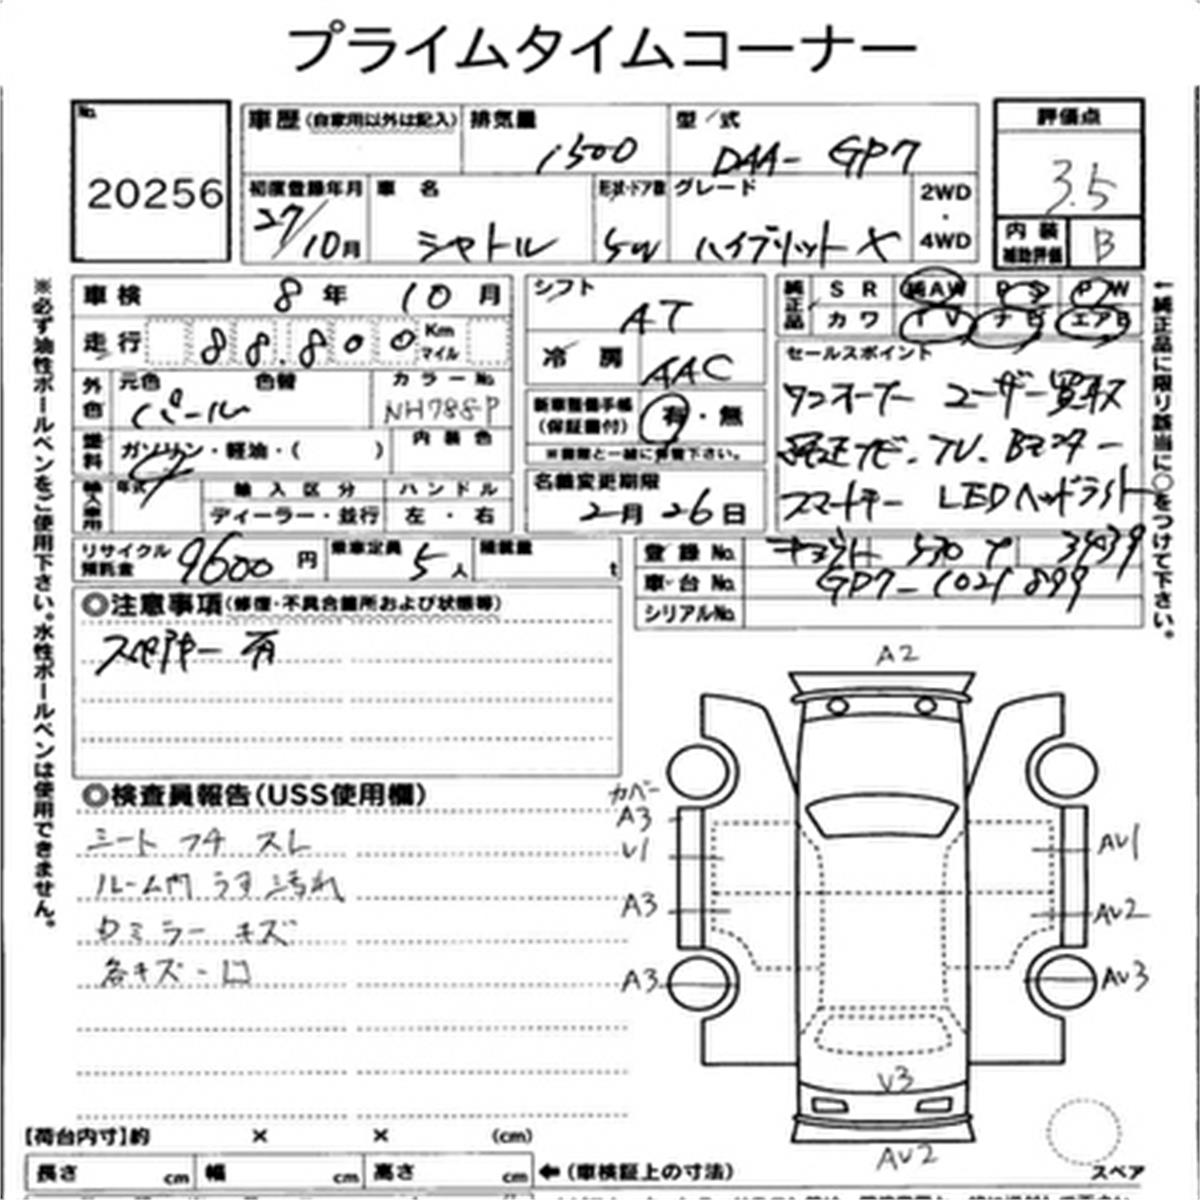 プライムタイムコーナー
No.
20256
車歴 (自家用以外は記入) 排気量 1500 型/式 DAA- GP7
初度登録年月 27/10月 車 名 シャトル 形状・ドア数 5W グレード ハイブリット X 2WD・4WD
評価点 3.5
内装補助評価 B
車検 8年 10月
走行 88.800 Km マイル
外色 元色 パール 色替 カラーNo. NH788P
燃料 ガソリン・軽油・( ) 内装色
輸入車用 年式 輸入区分 ハンドル
ディーラー・並行 左・右
シフト AT
冷房 AAC
新車整備手帳(保証書付) 有・無
※書類と一緒に保管下さい。
名義変更期限 2月 26日
純正品 SR AW PS PW
カワ TV ナビ エアB
セールスポイント
ワンオーナー ユーザー買取
純正ナビ. TV. Bモニター
スマートキー LEDヘッドライト
リサイクル預託金 9600円 乗車定員 5人 積載量 t
登録No. 530 3439
車台No. GP7-1021899
シリアルNo.
◎注意事項(修復・不具合箇所および状態等)
スペアキー 有
◎検査員報告(USS使用欄)
シート フチ スレ
ルーム内 うす汚れ
ミラー キズ
各キズ-凹
※必ず油性ボールペンをご使用下さい。水性ボールペンは使用できません。
←純正品に限り該当に○をつけて下さい。
A2
カバー
A3
V1
A3
A3
AV1
AV2
AV3
V3
AV2
スペア
【荷台内寸】約 × × (cm)
長さ cm 幅 cm 高さ cm ←(車検証上の寸法)